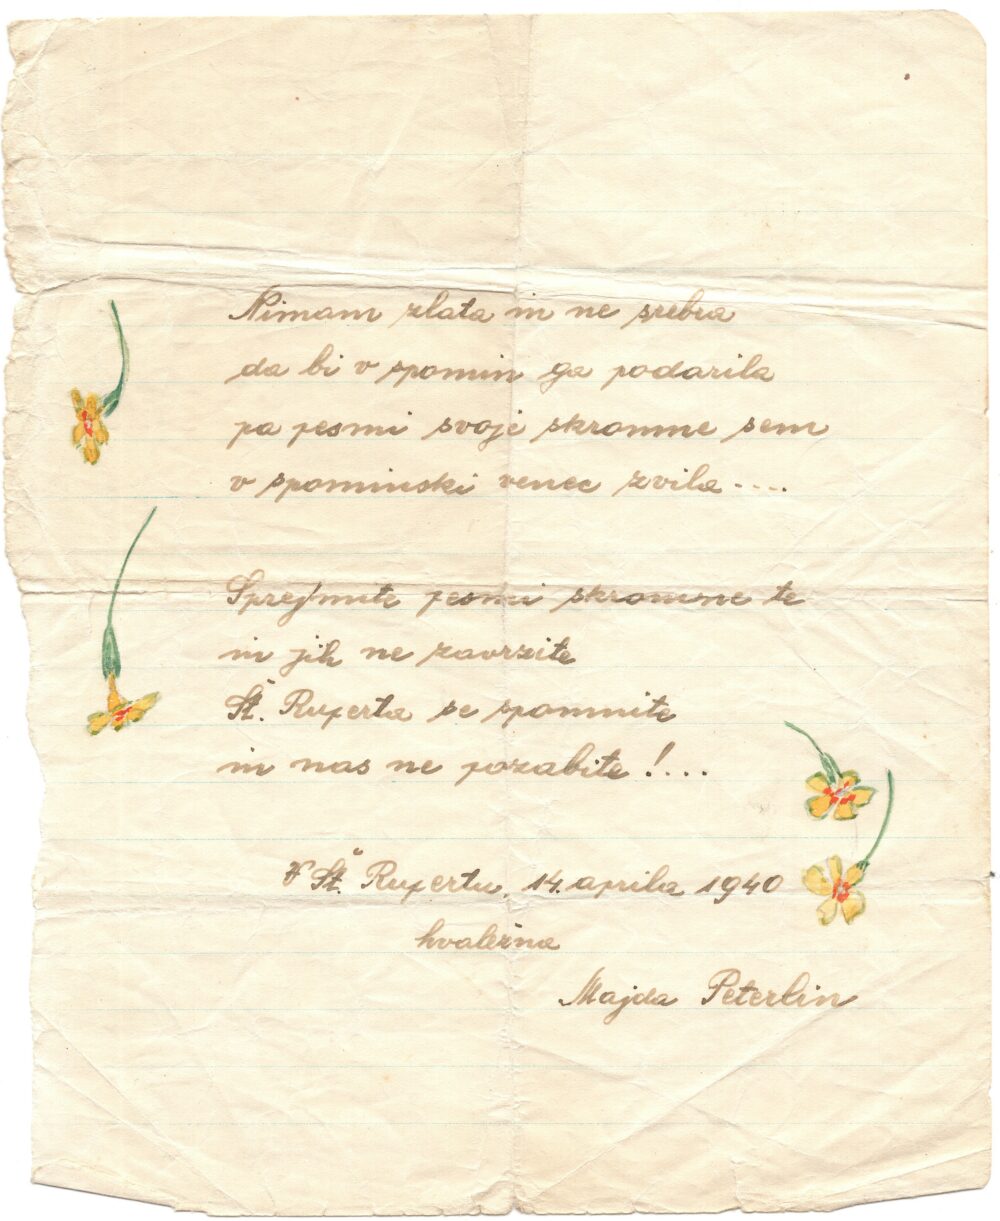 Nimam zlata in ne srebra
da bi v spomin ga podarila
pa pesmi svoje skromne sem
v spominski venec zvila....
Sprejmite pesmi skromne te
in jih ne zavrzite
Št. Ruperta se spomnite
in nas ne pozabite!....
V Št. Rupertu, 14. aprila 1940
hvaležna
Majda Peterlin